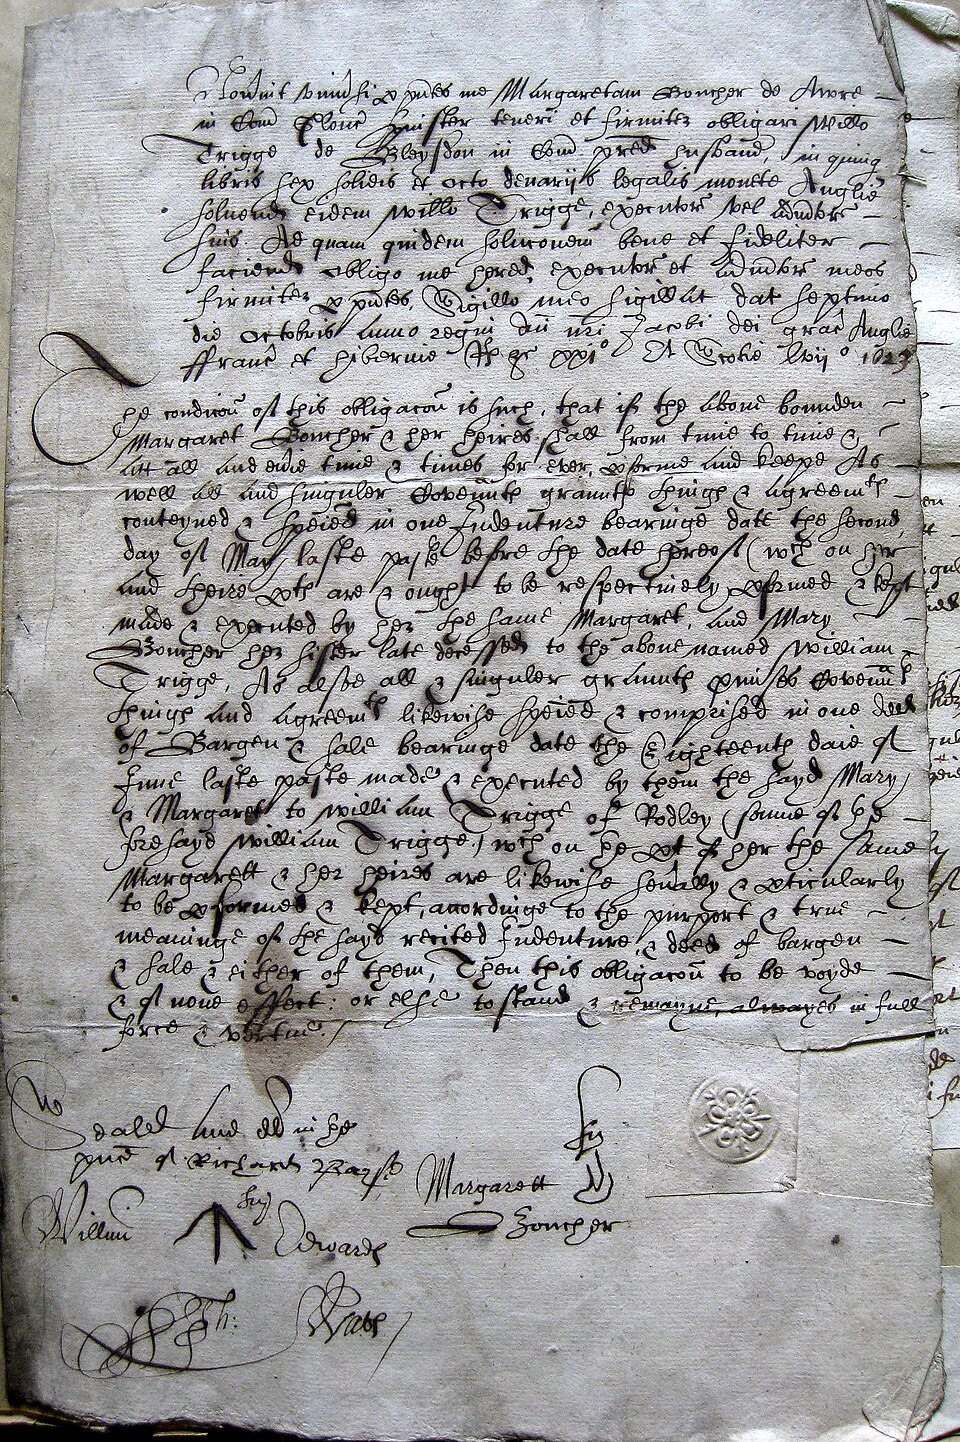 Noverint universi p pntes me Margaretam Boucher de Awre
in Com Glouc Spinster teneri et firmiter obligari Willo
Trigge de Bleysdon in Com pred husband, in quinq
libris sex solidis et octo denarijs legalis monete Anglie
solvend eidem Willo Trigge, executor vel Admstor
suis Ad quam quidem soluconem bene et fideliter
faciend obligo me hered, executor et Admstor meos
firmiter p pntes, Sigillo meo sigillat dat septimo
die Octobris Anno regni dni nri Jacobi dei grac Anglie
ffranc et hibernie &c xxjo Et Scotie lvijo 1623
The condicou of this obligacou is such, that if the above bounden
Margaret Boucher & her heires shall from time to time &
att all and evie time & times for ever, pforme and keepe As
well all and singuler Covennts graunts things & agreemts
conteyned & specied in one Indenture bearinge date the second
day of May laste paste before the date hereof (wch on her
and theire pts are & ought to be respectively pformed & kept
made & executed by her the same Margaret, and Mary
Boucher her sister late decessed to the above named William
Trigge, As alsoe all & singuler graunts pmises Covennts
things and agreemts likewise specied & comprised in one deed
of Bargen & sale bearinge date the Eighteenth daie of
June laste paste made & executed by them the sayd Mary
& Margaret to William Trigge of Rodley (sonne of the
foresayd William Trigge,) wch on the pt of her the same
Margarett & her heires are likewise sevally & pticularly
to be pformed & kept, accordinge to the purport & true
meaninge of the sayd recited Indenture, & deed of bargen
& sale & either of them, Then this obligacou to be voyde
& of none effect: or else to stand & remayne, alwayes in full
force & vertue.
Sealed and dd in the
pnce of Richard
Margarett
Boucher
Willm
Edwards
Th: